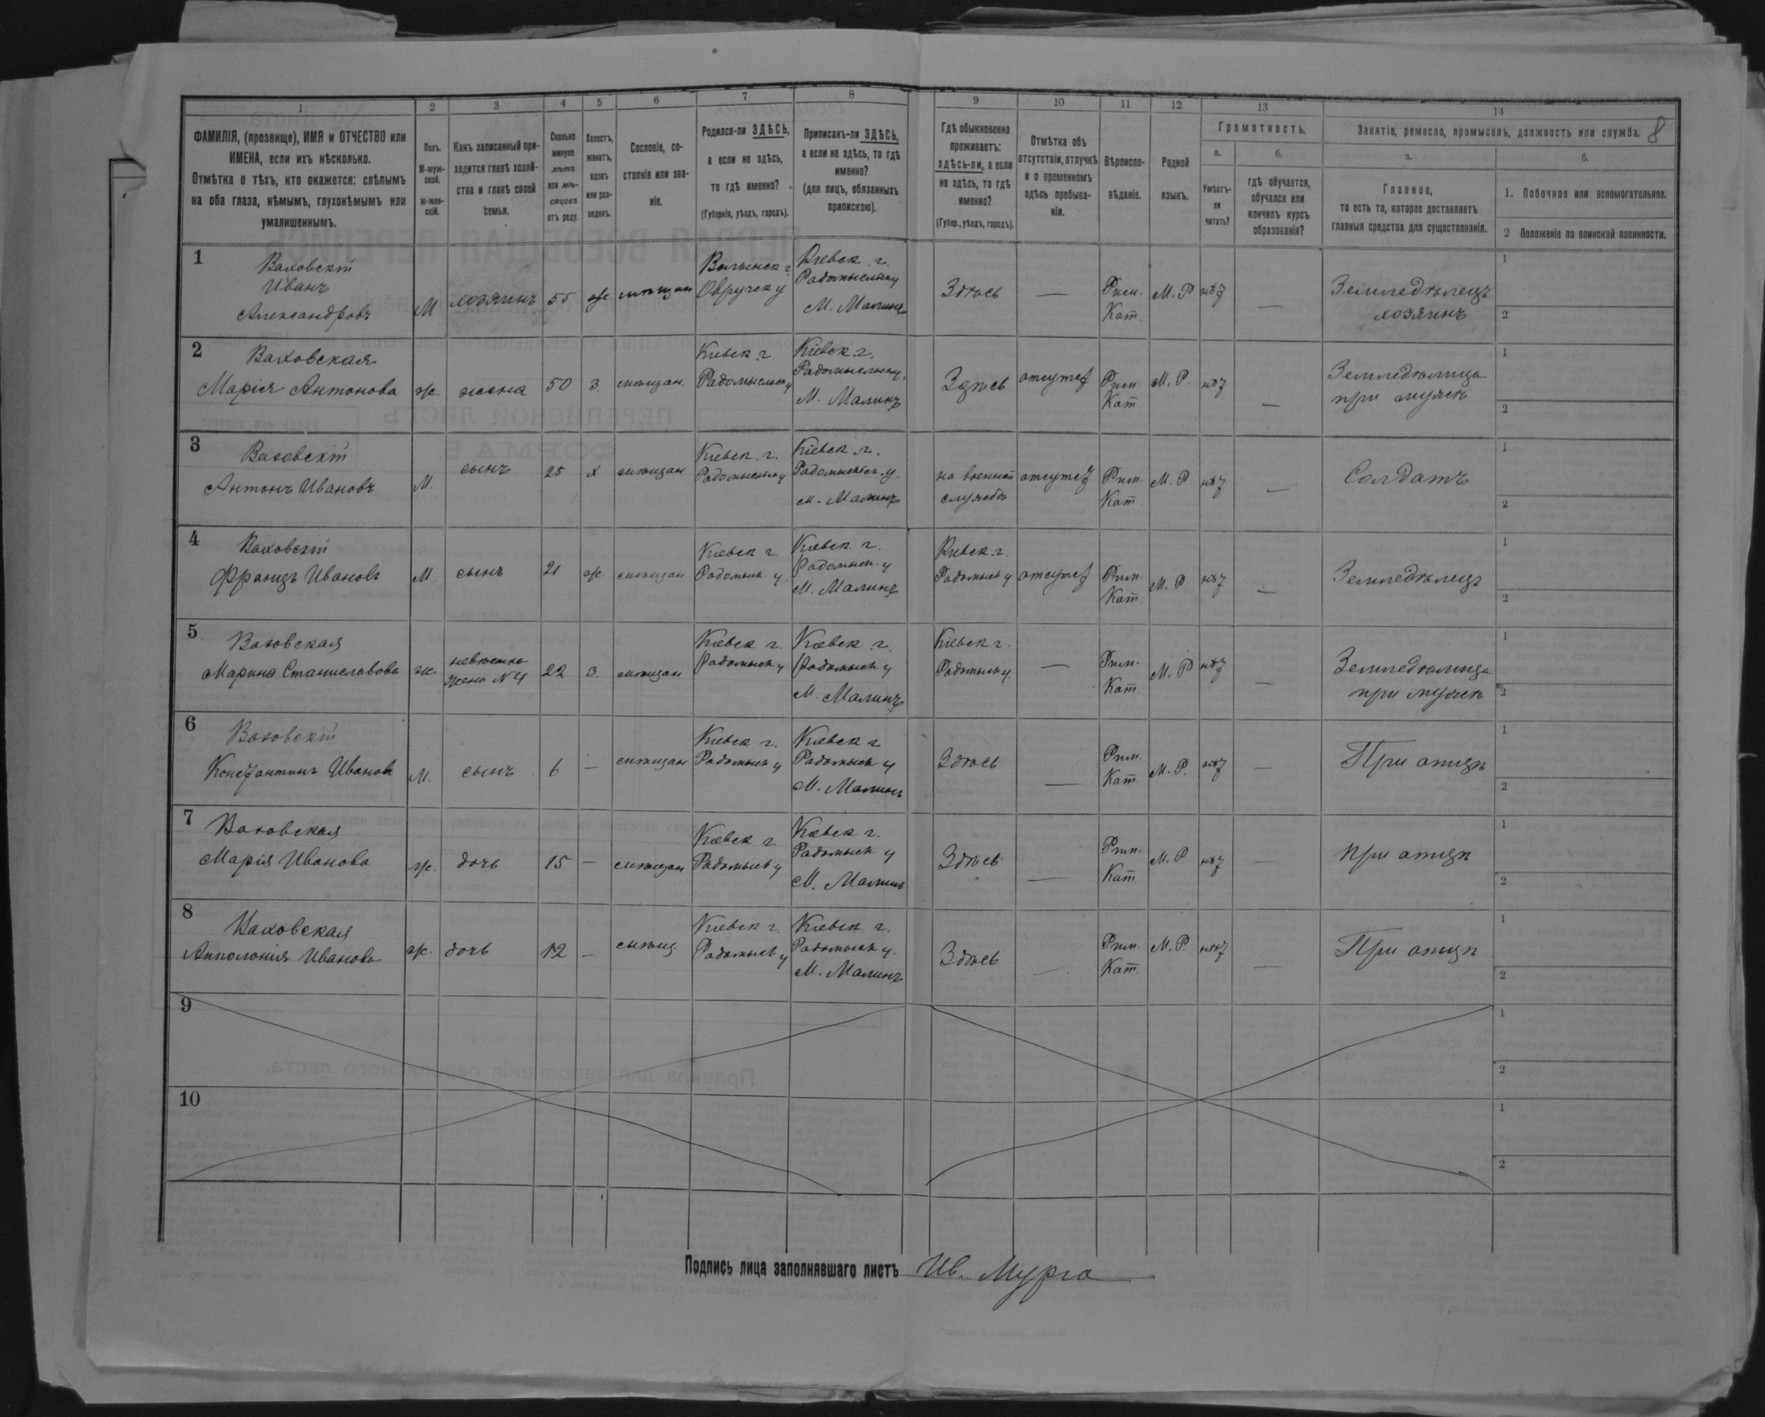 1 2 3 4 5 6 7 8 9 10 11 12 13 14
8
ФАМИЛІЯ, (прозвище), ИМЯ и ОТЧЕСТВО или
ИМЕНА, если ихъ нѣсколько.
Отмѣтка о тѣхъ, кто окажется: слѣпымъ
на оба глаза, нѣмымъ, глухонѣмымъ или
умалишеннымъ.
Полъ.
М-муж-
ской.
ж-жен-
скій.
Какъ записанный при-
ходится главѣ хозяй-
ства и главѣ своей
семьи.
Сколько
минуло
лѣтъ
или мѣ-
сяцевъ
отъ роду.
Холостъ,
женатъ,
вдовъ
или раз-
веденъ.
Сословіе, со-
стояніе или зва-
ніе.
Родился-ли ЗДѢСЬ,
а если не здѣсь,
то гдѣ именно?
(Губернія, уѣздъ, городъ).
Приписанъ-ли ЗДѢСЬ,
а если не здѣсь, то гдѣ
именно?
(для лицъ, обязанныхъ
припискою).
Гдѣ обыкновенно
проживаетъ:
здѣсь-ли, а если
не здѣсь, то гдѣ
именно?
(Губер., уѣздъ, городъ).
Отмѣтка объ
отсутствіи, отлучкѣ
и о временномъ
здѣсь пребыва-
ніи.
Вѣроиспо-
вѣданіе.
Родной
языкъ.
Грамотность.
а.
Умѣетъ-
ли
читать?
б.
гдѣ обучается,
обучался или
кончилъ курсъ
образованія?
Занятіе, ремесло, промыселъ, должность или служба.
а.
Главное,
то есть то, которое доставляетъ
главныя средства для существованія.
б.
1. Побочное или вспомогательное.
2 Положеніе по воинской повинности.
1
Ваховскій
Иванъ
Александровъ
М хозяинъ 55 ж мѣщан
Волынск г.
Овручск у
Кіевск. г.
Радомысльск у
М. Малинъ
Здѣсь —
Рим.
Кат.
М. Р нѣт —
Земледѣлецъ
хозяинъ
1
2
2
Ваховская
Марія Антонова
ж. жена 50 з. мѣщан
Кіевск. г
Радомысльск у
Кіевск. г.
Радомысльск у.
М. Малинъ
Здѣсь отсутст
Рим.
Кат
М. Р. нѣт —
Земледѣлица
при мужѣ
1
2
3
Ваховскій
Антонъ Ивановъ
М. сынъ 25 х мѣщан
Кіевск. г.
Радомысльск у
Кіевск. г.
Радомысльск. у.
м. Малинъ
на военной
службѣ
отсутст
Рим.
Кат
М. Р нѣт —
Солдатъ
1
2
4
Ваховскій
Францъ Ивановъ
М. сынъ 21 ж. мѣщан
Кіевск г.
Радомыск. у.
Кіевск г.
Радомыск. у
М. Малинъ
Кіевск. г.
Радомыск у
отсутст
Рим.
Кат.
М. Р нѣт —
Земледѣлецъ
1
2
5
Ваховская
Марина Станиславова
ж невѣстка
жена №4
22 з. мѣщан
Кіевск г.
Радомыск у
Кіевск г.
Радомыск у
М. Малинъ
Кіевск г.
Радомыск у.
—
Рим.
Кат.
М. Р нѣт —
Земледѣлица
при мужѣ
1
2
6
Ваховскій
Константинъ Ивановъ
М. сынъ 6 — мѣщан
Кіевск г.
Радомыск у
Кіевск г
Радомыск у
М. Малинъ
Здѣсь —
Рим.
Кат
М. Р. нѣт —
При отцѣ
1
2
7
Ваховская
Марія Иванова
ж. дочь 15 — мѣщан
Кіевск г
Радомыск у
Кіевск г.
Радомыск у
М. Малинъ
Здѣсь —
Рим.
Кат.
М. Р нѣт —
при отцѣ
1
2
8
Ваховская
Апполонія Иванова
ж. дочь 12 — мѣщ
Кіевск г.
Радомыск у
Кіевск г.
Радомыск у.
М. Малинъ
Здѣсь —
Рим.
Кат.
М. Р. нѣт —
При отцѣ
1
2
9
1
2
10
1
2
Подпись лица заполнявшаго листъ Ив. Мурга